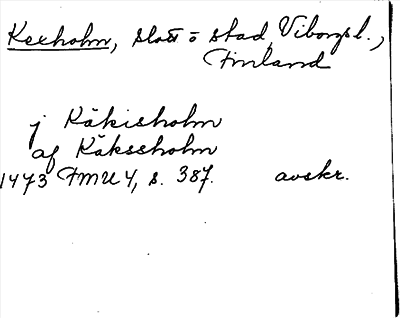 Kexholm, slott o stad, Viborgs l.,
Finland
j Käkisholm
af Käksholm
1473 FMU 4, s. 387. avskr.